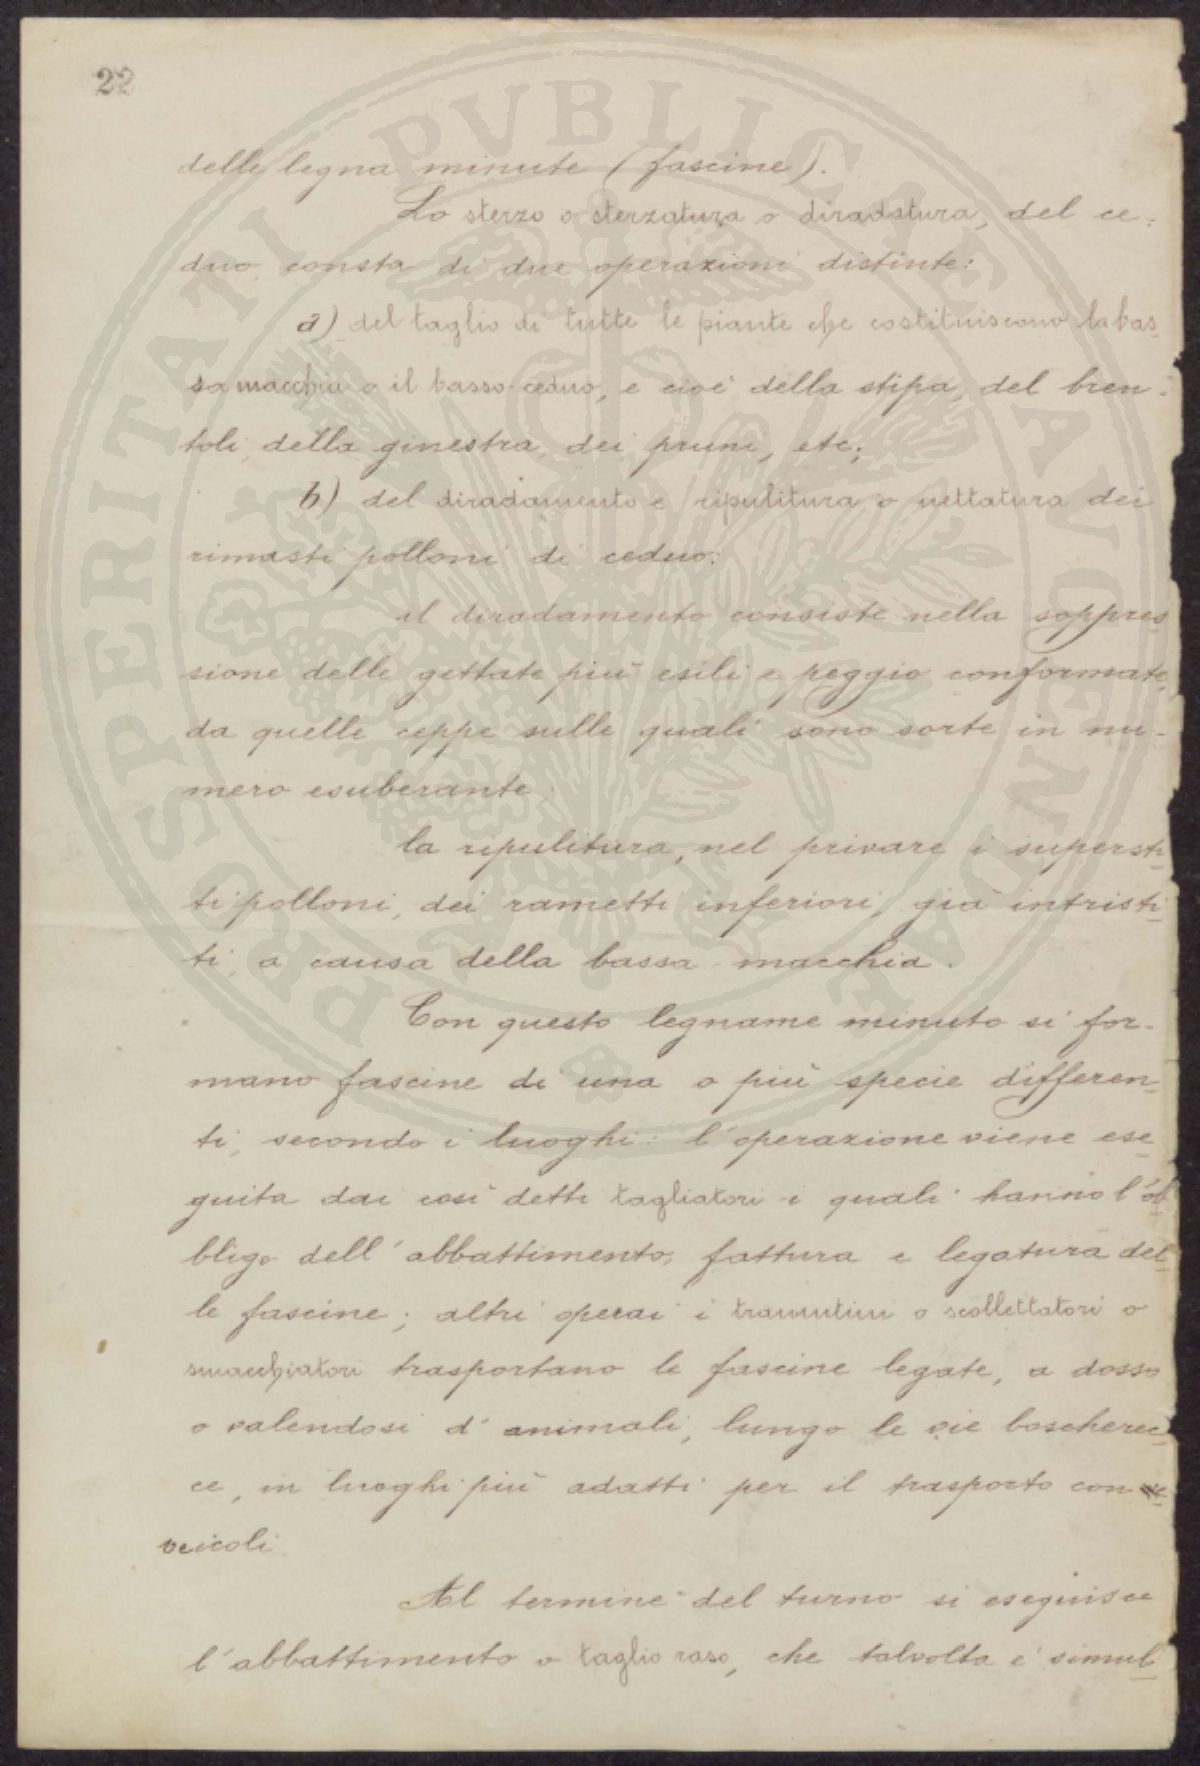 22
delle legna minute (fascine).
Lo sterzo o sterzatura o diradatura, del ce-
duo, consta di due operazioni distinte:
a) del taglio di tutte le piante che costituiscono la bas
sa macchia o il basso ceduo, e cioè della stipa, del bren-
toli, della ginestra, dei pruni, etc;
b) del diradamento e ripulitura o nettatura dei
rimasti polloni di ceduo:
il diradamento consiste nella soppres
sione delle gettate più esili e peggio conformate
da quelle ceppe sulle quali sono sorte in nu-
mero esuberante;
la ripulitura, nel privare i supersti
ti polloni, dei rametti inferiori, già intristi
ti, a causa della bassa macchia.
Con questo legname minuto si for-
mano fascine di una o più specie differen-
ti, secondo i luoghi: l'operazione viene ese
guita dai così detti tagliatori i quali hanno l'ob
bligo dell'abbattimento, fattura e legatura del-
le fascine; altri operai i tramutini o scollettatori o
smacchiatori trasportano le fascine legate, a dosso
o valendosi d'animali, lungo le vie boscherec-
ce, in luoghi più adatti per il trasporto con
veicoli.
Al termine del turno si eseguisce
l'abbattimento o taglio raso, che talvolta è simul-
PROSPERITATI PVBLICAE AVGENDAE